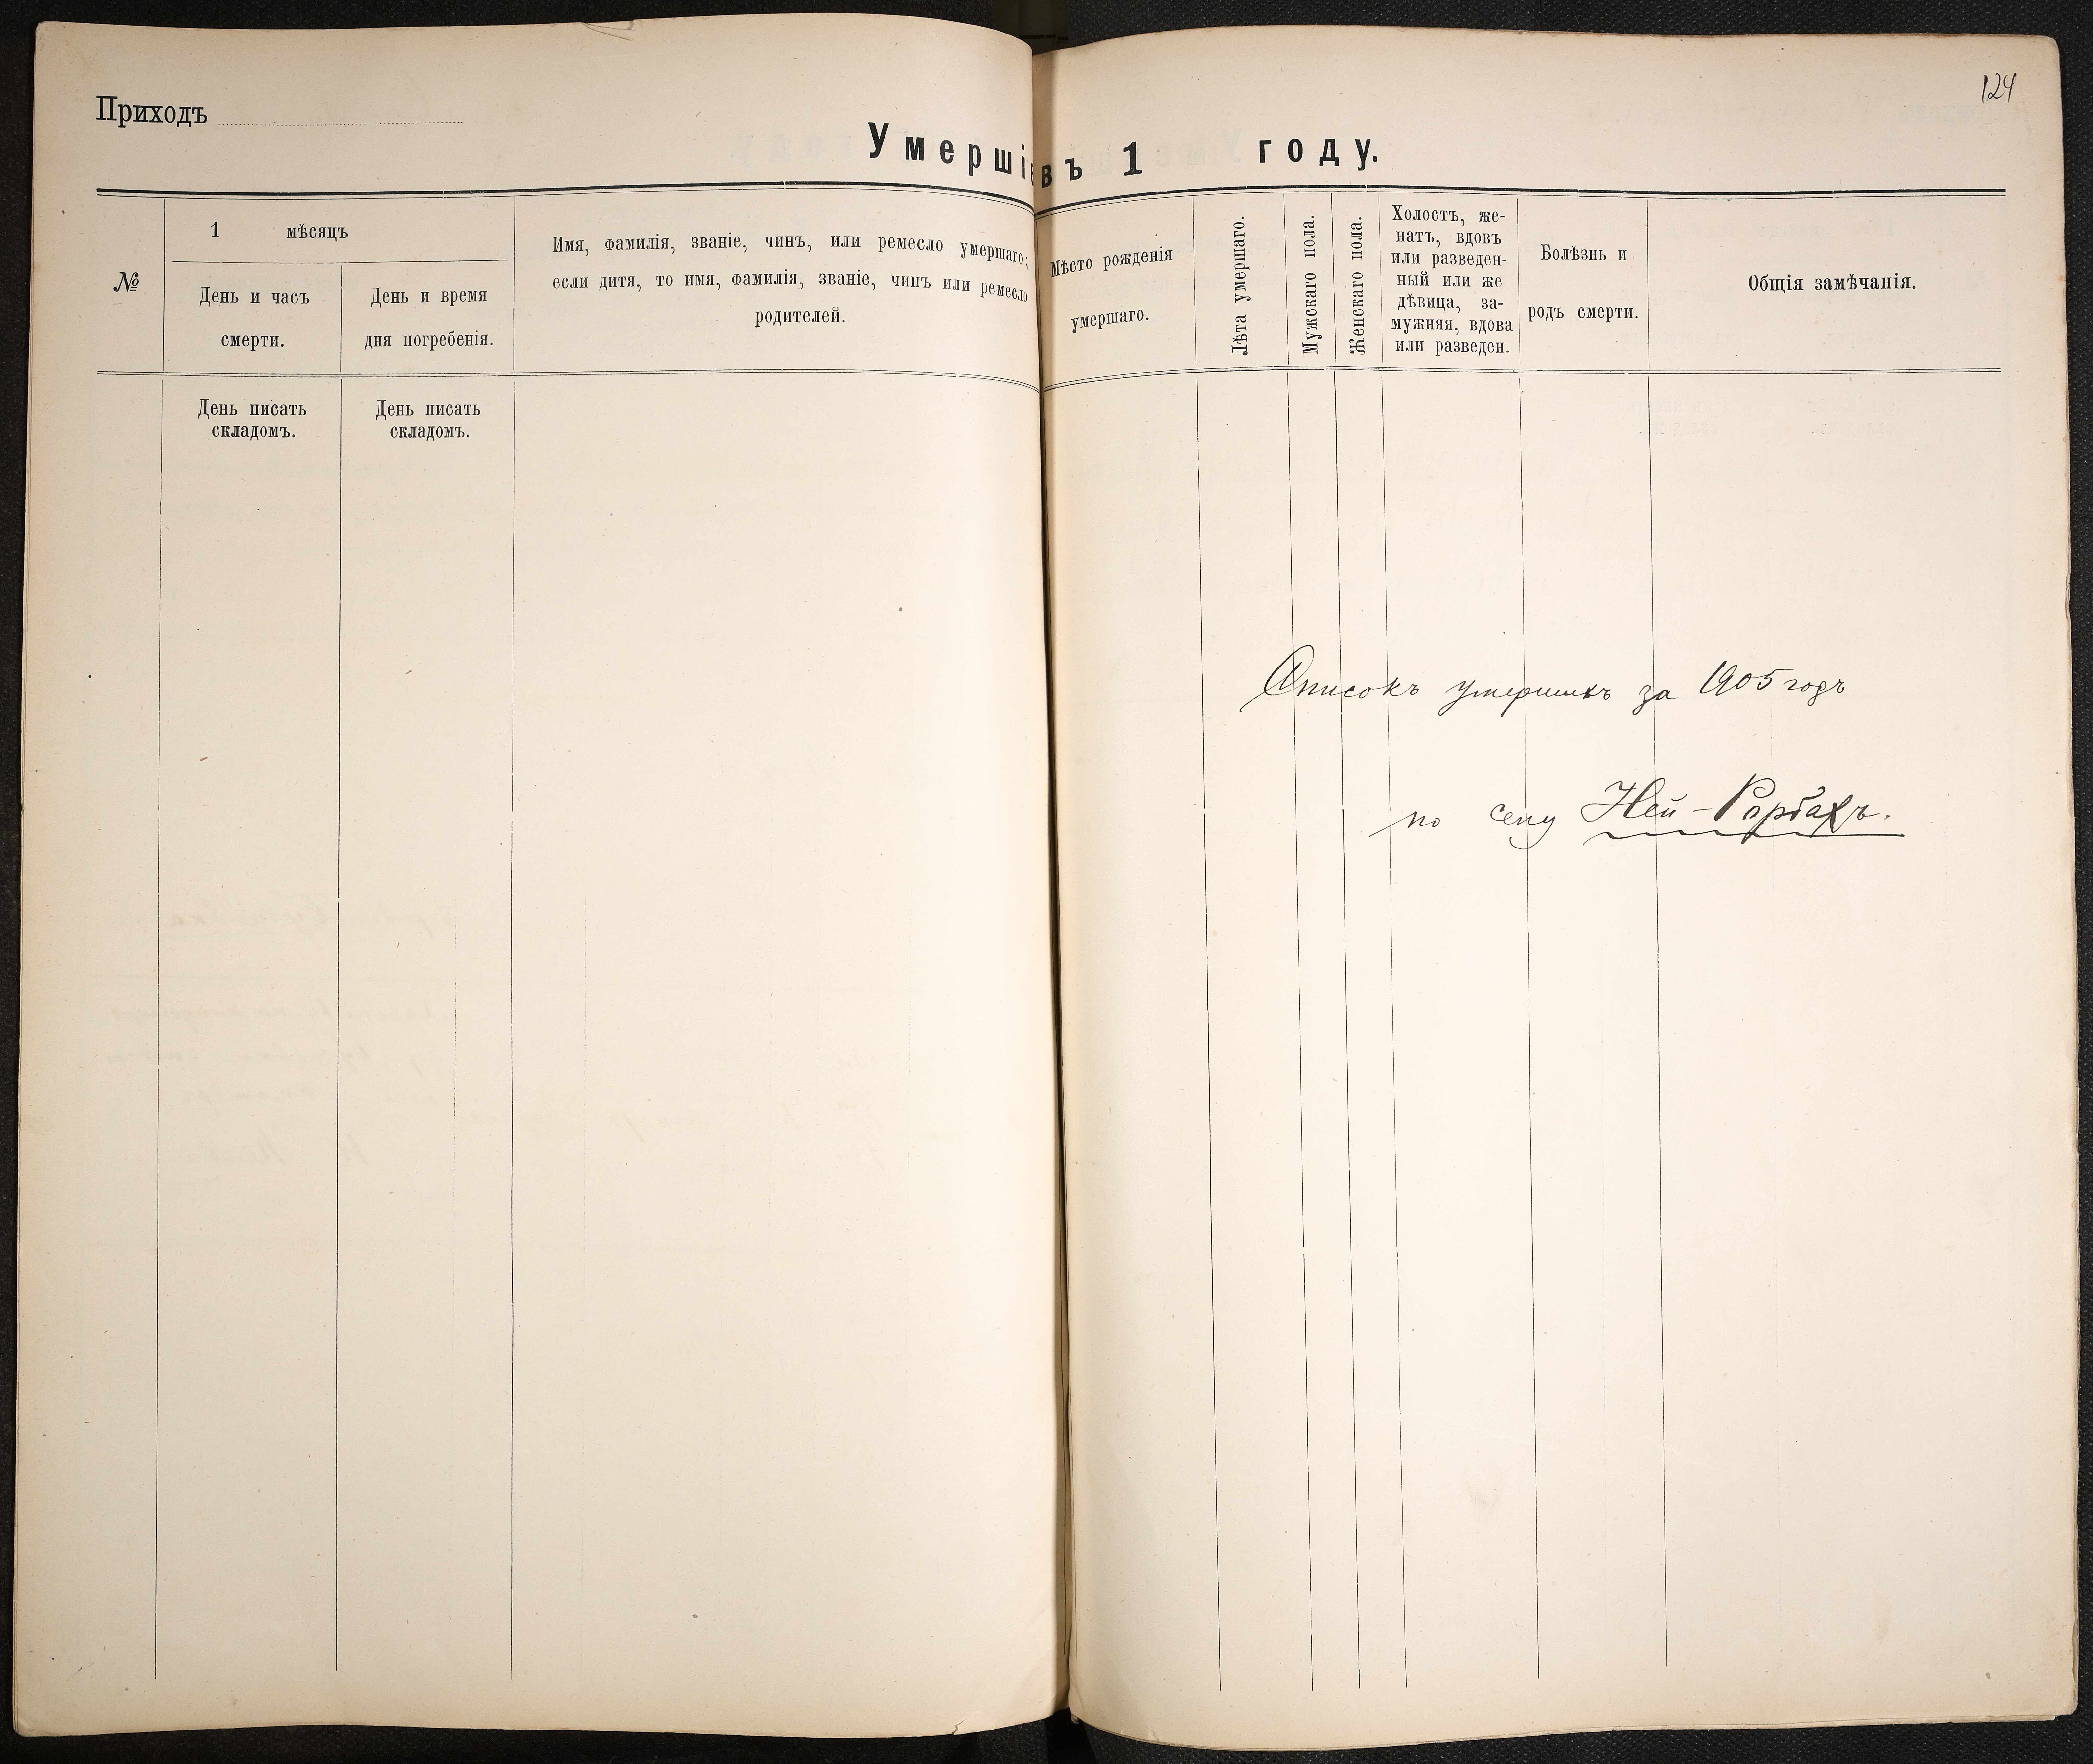 124
Приходъ
Умершіе въ 1 году.
№
1 мѣсяцъ
День и часъ
смерти.
День и время
дня погребенія.
Имя, фамилія, званіе, чинъ, или ремесло умершаго;
если дитя, то имя, фамилія, званіе, чинъ или ремесло
родителей.
Мѣсто рожденія
умершаго.
Лѣта умершаго.
Мужскаго пола.
Женскаго пола.
Холостъ, же-
натъ, вдовъ
или разведен-
ный или же
дѣвица, за-
мужняя, вдова
или разведен.
Болѣзнь и
родъ смерти.
Общія замѣчанія.
День писать
складомъ.
День писать
складомъ.
Списокъ умершихъ за 1905 годъ
по селу Ней-Рорбахъ.